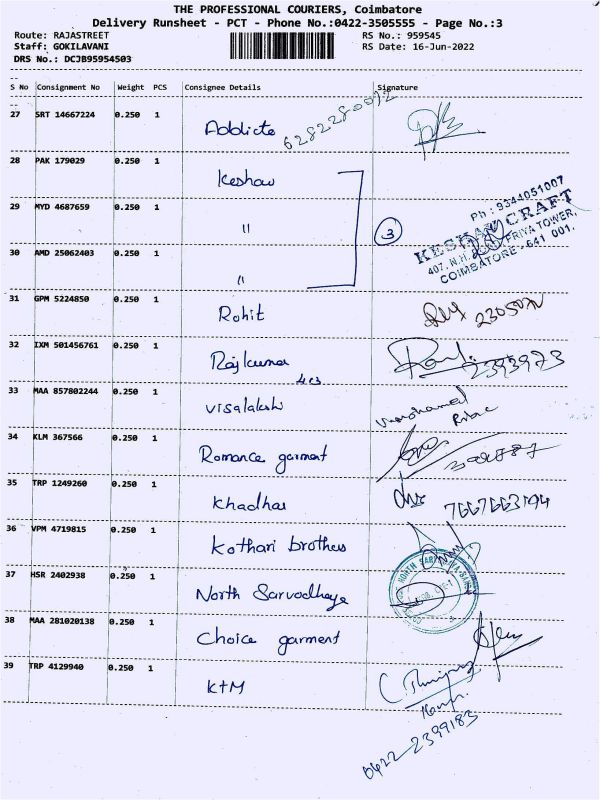 THE PROFESSIONAL COURIERS, Coimbatore
Delivery Runsheet - PCT - Phone No.:0422-3505555 - Page No.:3
Route: RAJASTREET RS No.: 959545
Staff: GOKILAVANI RS Date: 16-Jun-2022
DRS No.: DCJB95954503
S No Consignment No Weight PCS Consignee Details Signature
27 SRT 14667224 0.250 1 Addicte 6282280092
28 PAK 179029 0.250 1 Keshav
29 MYD 4687659 0.250 1 〃 3
Ph : 9344051007
KESHAV CRAFT
407, N.H. PRIYA TOWER,
COIMBATORE - 641 001.
30 AMD 25062403 0.250 1 〃
31 GPM 5224850 0.250 1 Rohit
32 IXM 501456761 0.250 1 Rajkumar 2393973
403
33 MAA 857802244 0.250 1 visalakshi
34 KLM 367566 0.250 1 Romance garment
35 TRP 1249260 0.250 1 Khadhar
36 VPM 4719815 0.250 1 Kothari brothers
37 HSR 2402938 0.250 1 North Sarvodhaya
NORTH
38 MAA 281020138 0.250 1 Choice garment
39 TRP 4129940 0.250 1 KTM
0422-2399183